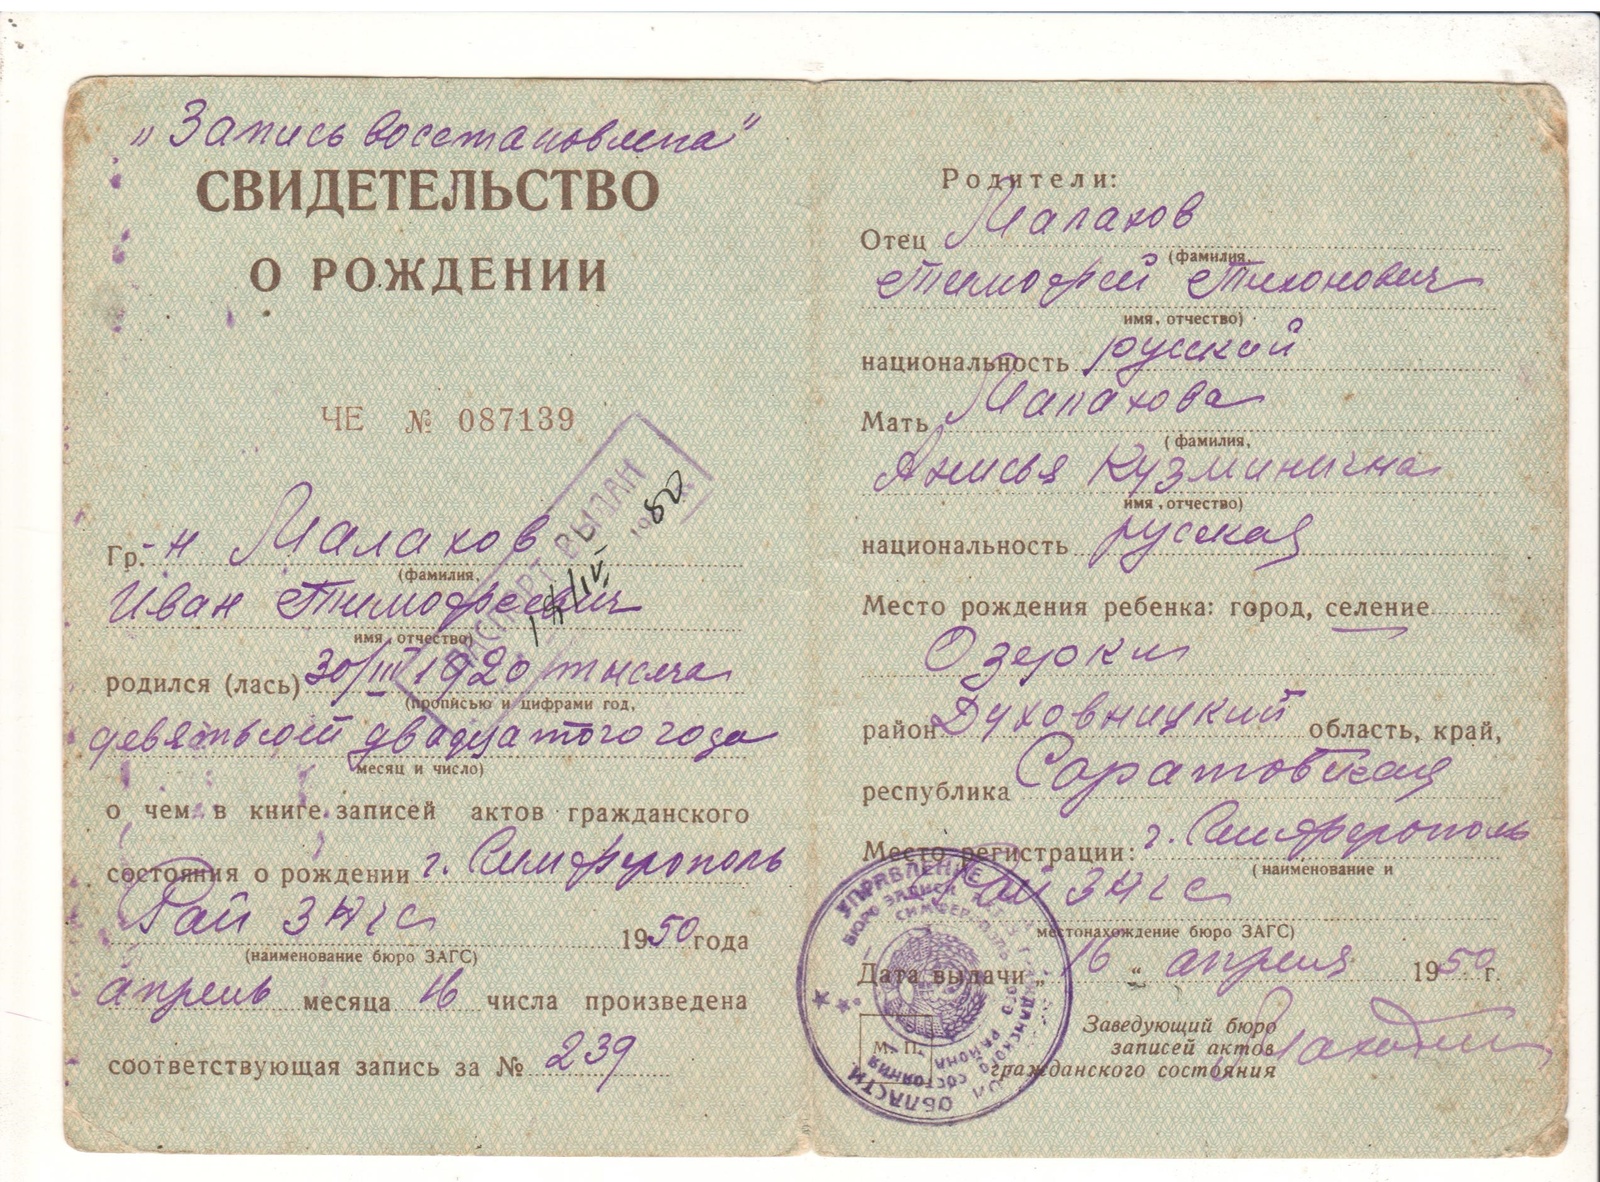 „Запись восстановлена"
СВИДЕТЕЛЬСТВО
О РОЖДЕНИИ
ЧЕ № 087139
ПАСПОРТ ВЫДАН
19 80
Гр.-н Малахов
(фамилия,
Иван Тимофеевич
имя, отчество)
родился (лась) 30/III 1920 тысяча
(прописью и цифрами год,
девятьсот двадцатого года
месяц и число)
о чем в книге записей актов гражданского
состояния о рождении г. Симферополь
Рай ЗАГС 1950 года
(наименование бюро ЗАГС)
апрель месяца 16 числа произведена
соответствующая запись за № 239
Родители:
Отец Малахов
(фамилия,
Тимофей Тихонович
имя, отчество)
национальность русский
Мать Малахова
(фамилия,
Анисья Кузминична
имя, отчество)
национальность русская
Место рождения ребенка: город, селение
Озерки
район Духовницкий область, край,
республика Саратовская
Место регистрации: г. Симферополь
(наименование и
Рай ЗАГС
местонахождение бюро ЗАГС)
Дата выдачи „16" апреля 1950 г.
М. П.
Заведующий бюро
записей актов
гражданского состояния
УПРАВЛЕНИЕ ОБЛАСТИ
БЮРО ЗАПИСИ АКТОВ ГРАЖДАНСКОГО СОСТОЯНИЯ
СИМФЕРОПОЛЬСКОГО РАЙОНА